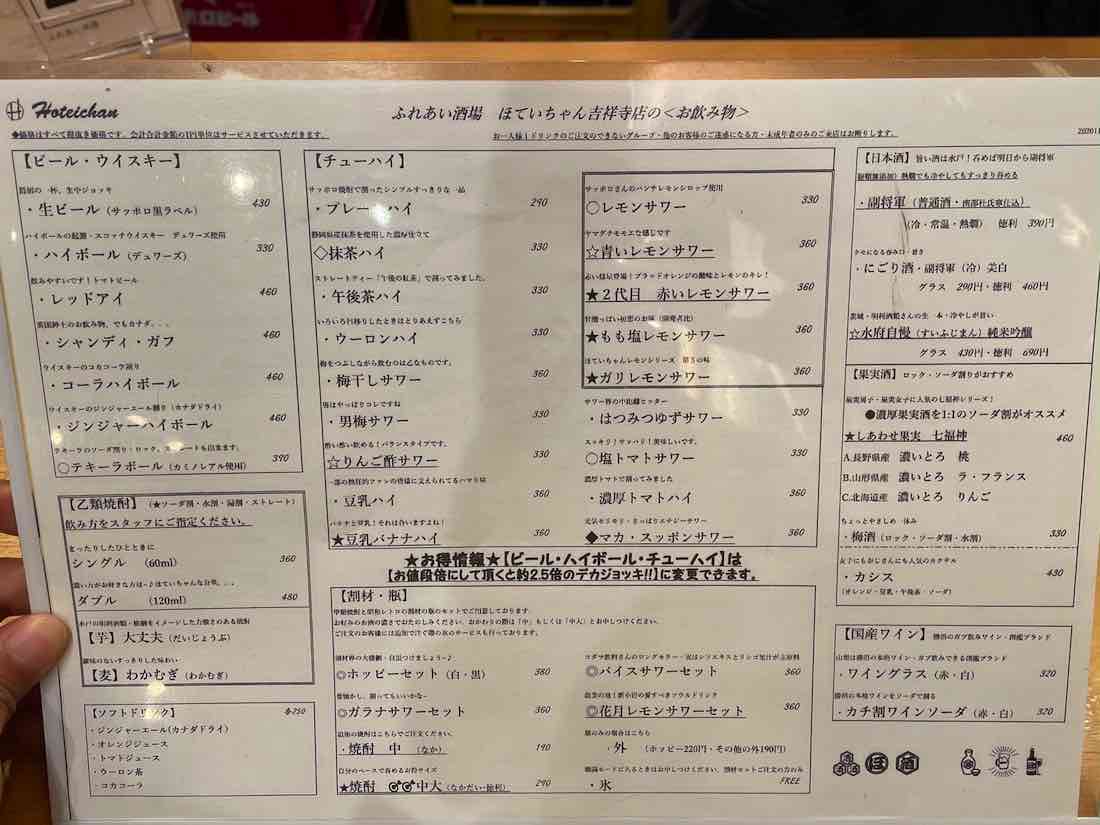 ふれあい酒場
Hoteichan
ふれあい酒場 ほていちゃん吉祥寺店の<お飲み物>
◆価格はすべて税抜き価格です。会計合計金額の1円単位はサービスさせていただきます。
お一人様1ドリンクのご注文のできないグループ・他のお客様のご迷惑になる方・未成年者のみのご来店はお断りします。
【ビール・ウイスキー】
・生ビール(サッポロ黒ラベル) 430
ハイボールの起源・スコッチウイスキー デュワーズ使用
・ハイボール(デュワーズ) 330
飲みやすいです!トマトビール
・レッドアイ 460
英国紳士のお飲み物、でもカナダ、、、
・シャンディ・ガフ 460
ウイスキーのコカコーラ割り
・コーラハイボール 460
ウイスキーのジンジャーエール割り(カナダドライ)
・ジンジャーハイボール 460
〇テキーラボール(カミノレアル使用) 390
【乙類焼酎】(★ソーダ割・水割・湯割・ストレート)
飲み方をスタッフにご指定ください。
まったりしたひとときに
シングル (60ml) 360
濃い方がお好きな方は~♪ほていちゃんな分量、、、
ダブル (120ml) 480
【芋】大丈夫(だいじょうぶ)
雑味のないすっきりした味わい
【麦】わかむぎ(わかむぎ)
【ソフトドリンク】 各250
・ジンジャーエール(カナダドライ)
・オレンジジュース
・トマトジュース
・ウーロン茶
・コカコーラ
【チューハイ】
サッポロ焼酎で割ったシンプルすっきりな一品
・プレーンハイ 290
静岡県産抹茶を使用した濃厚仕立て
◇抹茶ハイ 330
ストレートティー「午後の紅茶」で割ってみました。
・午後茶ハイ 330
いろいろ目移りしたときはとりあえずこちら
・ウーロンハイ 330
梅をつぶしながら飲むのは乙なものです。
・梅干しサワー 360
男はやっぱりコレですね
・男梅サワー 330
酢い酢い飲める!バランスタイプです。
☆りんご酢サワー 330
一部の熱狂的ファンの皆様に支えられてるハマり味
・豆乳ハイ 360
バナナと豆乳!それは合いますよね!
★豆乳バナナハイ 360
サッポロさんのパンチレモンシロップ使用
〇レモンサワー 330
ヤマグチモモエな感じです
☆青いレモンサワー 360
赤い彗星登場!ブラッドオレンジの酸味とレモンのキレ!
★2代目 赤いレモンサワー 360
甘酸っぱい初恋のお味(開発者比)
★もも塩レモンサワー 360
ほていちゃんレモンシリーズ 第5の味
★ガリレモンサワー 360
サワー界の中距離ヒッター
・はつみつゆずサワー 330
スッキリ!サッパリ!美味しいです。
〇塩トマトサワー 330
濃厚トマトで割ってみました
・濃厚トマトハイ 360
元気モリモリ・さっぱりエナジーサワー
◆マカ・スッポンサワー 360
★お得情報★【ビール・ハイボール・チューハイ】は
【お値段倍にして頂くと約2.5倍のデカジョッキ!!】に変更できます。
【割材・瓶】
甲類焼酎と昭和レトロの割材の瓶のセットでご用意しております。
お好みのお酒の濃さでおたのしみください。おかわりの際は「中」もしくは「中大」とお申しつけください。
ご注文のお客様には追加で注ぐ際の氷のサービスも行っております。
割材界の大横綱・白黒つけましょう~♪
◎ホッピーセット(白・黒) 380
◎ガラナサワーセット 360
追加の焼酎はこちらでご注文ください。
・焼酎 中(なか) 190
自分のペースで呑めるお得サイズ
★焼酎 中大(なかだい・徳利) 290
◎バイスサワーセット 360
◎花月レモンサワーセット 360
瓶のみの場合はこちら
・外 (ホッピー220円・その他の外190円)
・氷 FREE
【日本酒】旨い酒は水戸!呑めば明日から副将軍
・副将軍(普通酒・南部杜氏寒仕込)
(冷・常温・熱燗) 徳利 390円
・にごり酒・副将軍(冷)美白
グラス 290円・徳利 460円
☆水府自慢(すいふじまん)純米吟醸
グラス 430円・徳利 690円
【果実酒】ロック・ソーダ割りがおすすめ
麻實男子・麻實女子に人気の七福神シリーズ!
●濃厚果実酒を1:1のソーダ割がオススメ
★しあわせ果実 七福神 460
A.長野県産 濃いとろ 桃
B.山形県産 濃いとろ ラ・フランス
C.北海道産 濃いとろ りんご
ちょっとやさしめ一休み
・梅酒(ロック・ソーダ割・水割) 330
女子にもおじさんにも人気のカクテル
・カシス 430
(オレンジ・豆乳・午後茶・ソーダ)
【国産ワイン】
・ワイングラス(赤・白) 320
勝沼の本格ワインをソーダで割る
・カチ割ワインソーダ(赤・白) 320
ほ
酒